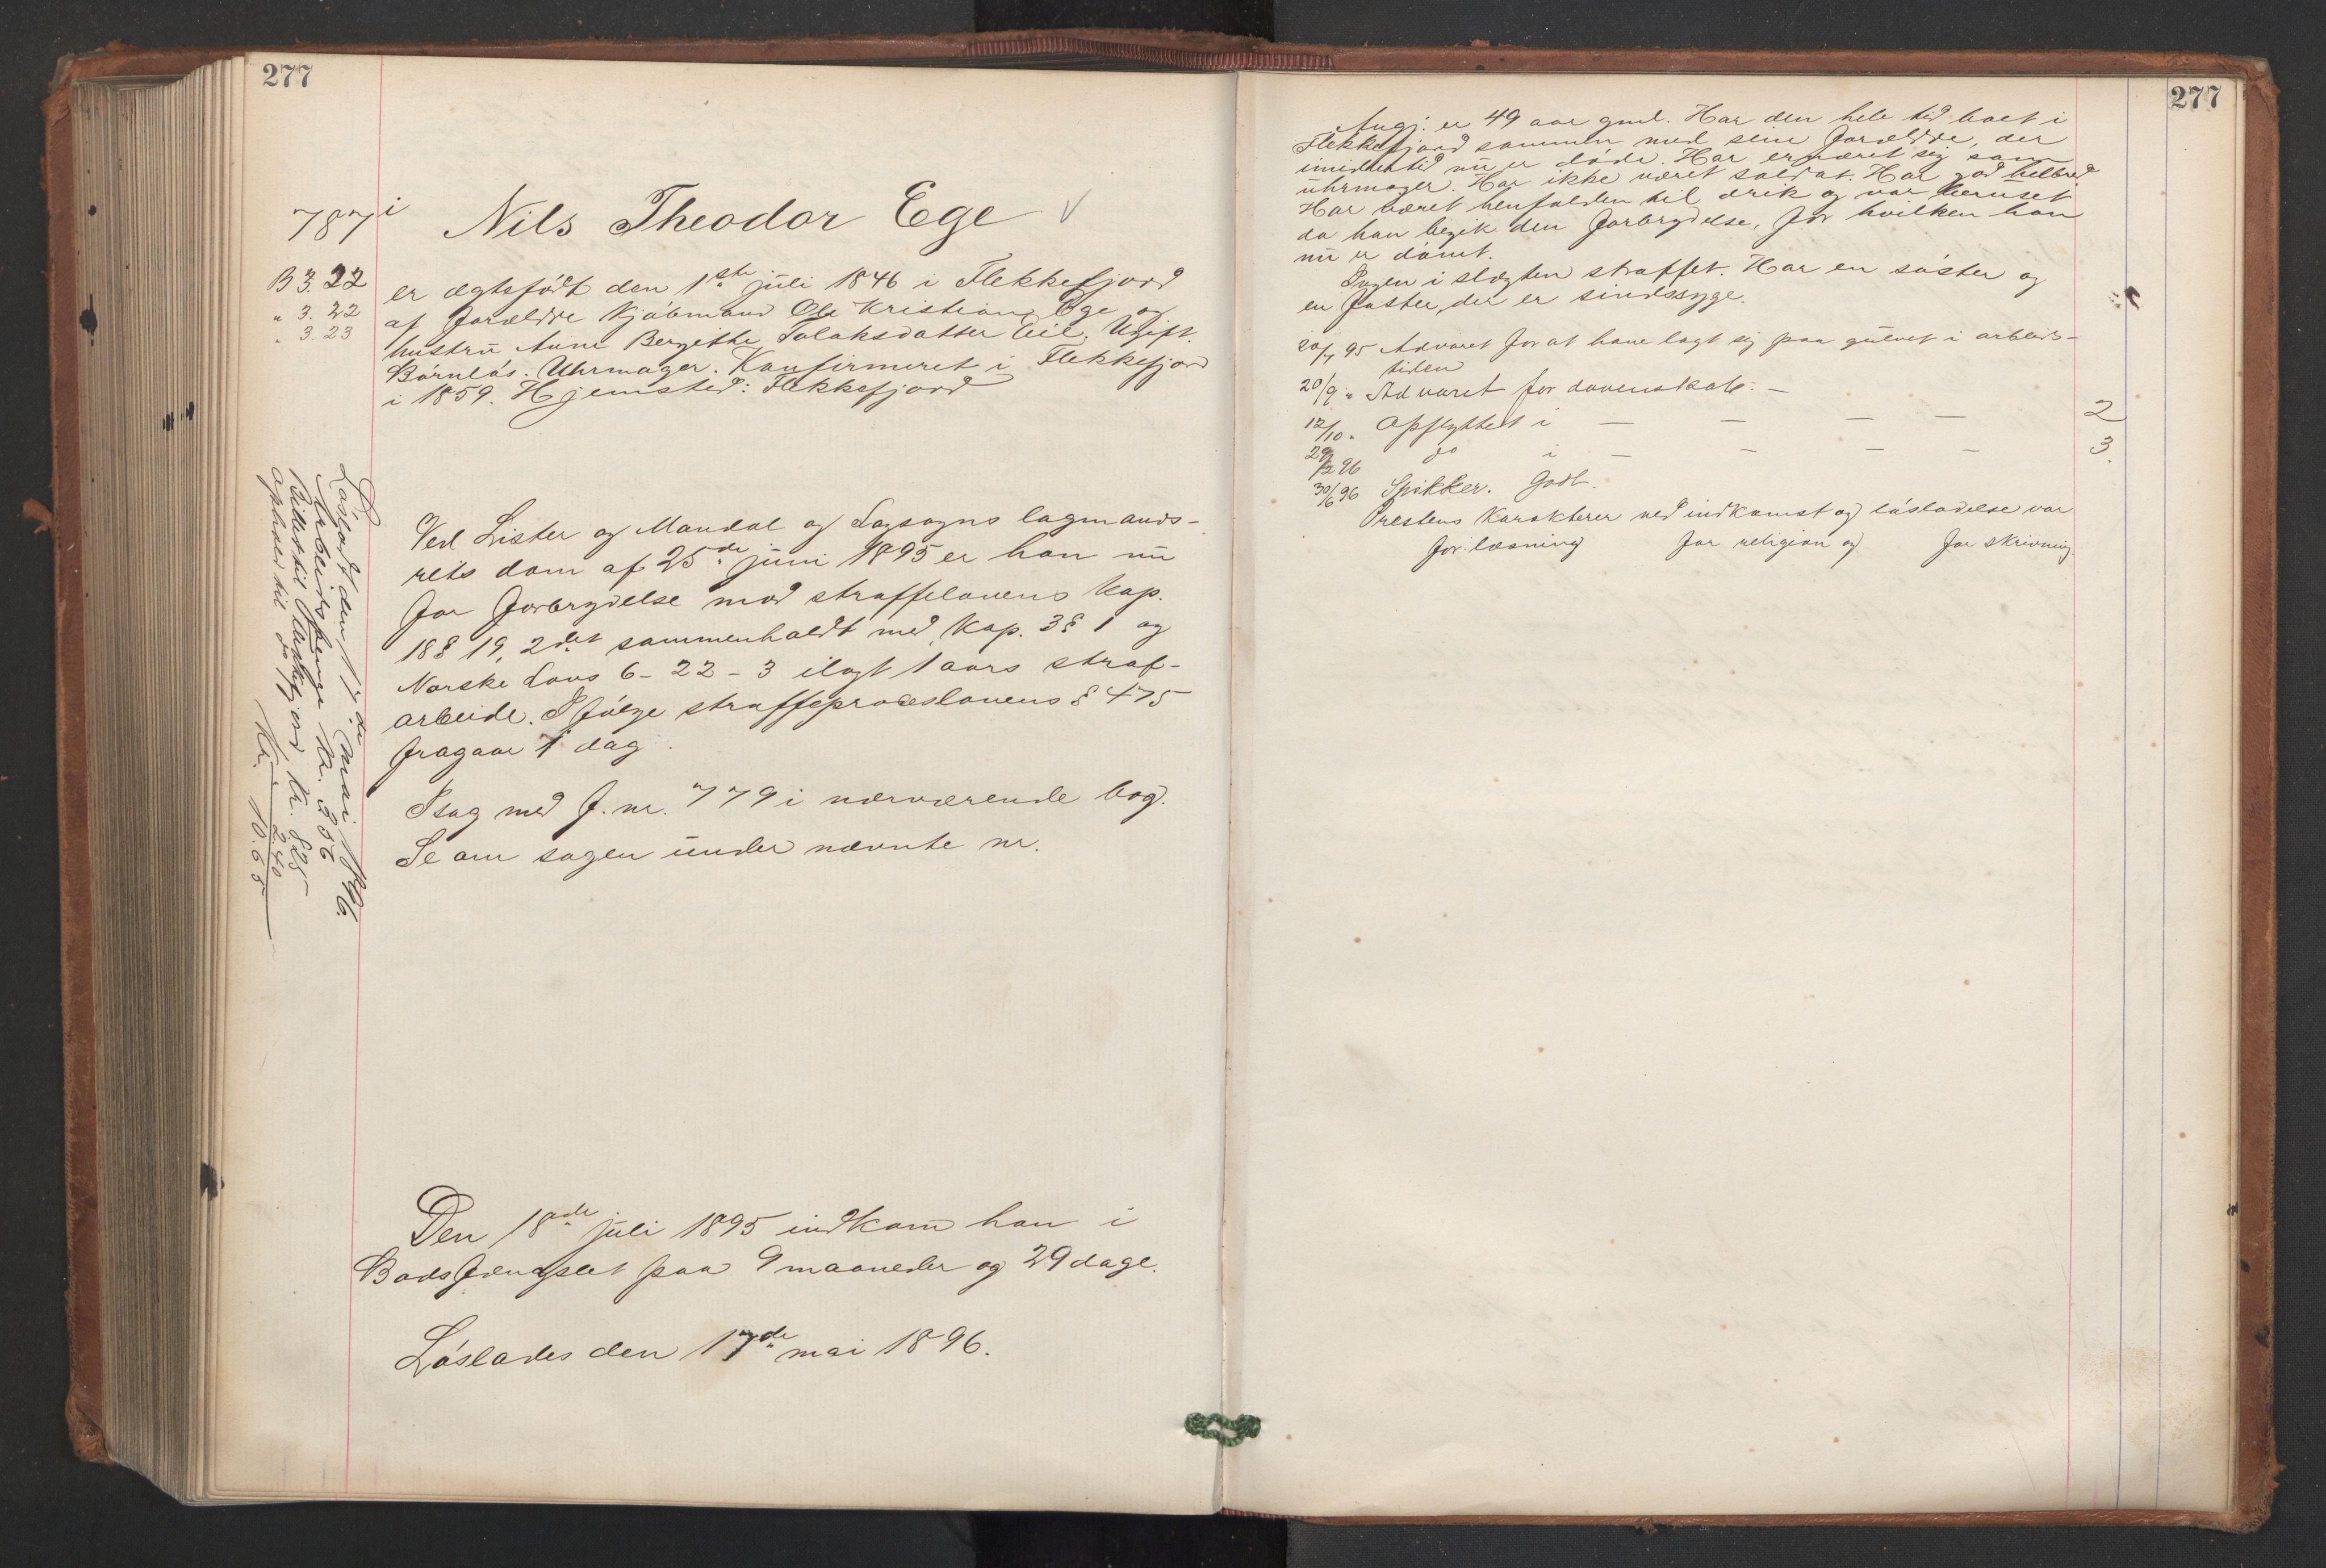 277
787 i Nils Theodor Ege √
B 3.22
" 3.22
" 3.23
er ægtefødt den 1ste juli 1846 i Flekkefjord
af forældre Kjøbmand Ole Kristian Ege og
hustru Anne Bergithe Tolaksdatter Eie. Ugift.
Børnløs. Uhrmager. Konfirmeret i Flekkefjord
i 1859. Hjemsted: Flekkefjord
Ved Lister og Mandal og Lagsogns lagmands-
rets dom af 25de juni 1895 er han nu
for forbrydelse mod straffelovens Kap.
18 § 19, 2det sammenholdt med Kap. 3 § 1 og
Norske Lovs 6-22-3 ilagt 1 aars straf-
arbeide. Ifølge straffeproceslovens § 475
fragaar 1 dag.
I sag med f. nr. 779 i nærværende bog.
Se om sagen under nævnte nr.
Løsladt den 17de Mai 1896.
Arbeidspenge Kr.
Billet til Flekkefjord, Kr. 8.25
ophold til do Kr. 2.40
Kr. 10.65
Den 18de juli 1895 indkom han i
Bodsfængslet paa 9 maaneder og 29 dage.
Løslades den 17de mai 1896.
277
Angj. er 49 aar gml. Har den hele tid boet i
Flekkefjord sammen med sine forældre, der
imidlertid nu er døde. Har ernæret sig som
uhrmager. Har ikke været soldat. Har god helbred
Har været henfalden til drik og var beruset
da han begik den forbrydelse, for hvilken han
nu er dømt.
Ingen i slægten straffet. Har en søster og
en faster, der er sindssyge.
20/7 95 Advaret for at have lagt sig paa gulvet i arbeids-
tiden
20/9 " Advaret for dovenskab. —
12/10 " Opflyttet i — — — — 2
29/2 96 do i — — — — 3.
30/6 96 Spikker. Godt.
Prestens Karakterer ved indkomst og løsladelse var
for læsning for religion og for skrivning.